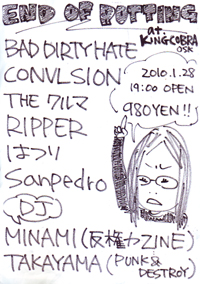 END OF ROTTING
at KINGCOBRA
OSK
BAD DIRTY HATE
CONVLSION
2010.1.28
19:00 OPEN
980YEN!!
THE クルマ
RIPPER
はつり
Sanpedro
DJ
MINAMI (反権力ZINE)
TAKAYAMA (PUNK & DESTROY)